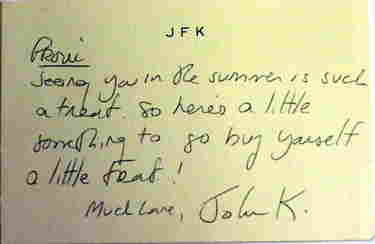 JFK
Seeing you in the summer is such
a treat. So here's a little
something to go buy yourself
a little treat!
Much Love, John K.